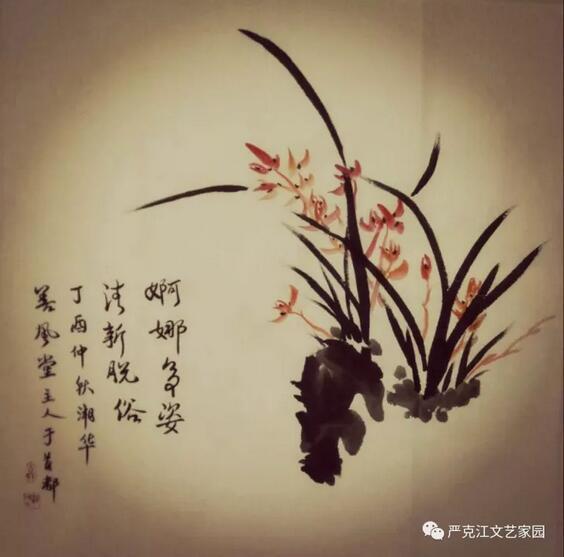 婀娜多姿
清新脱俗
丁酉仲秋湘华
善风堂主人于首都
严克江文艺家园